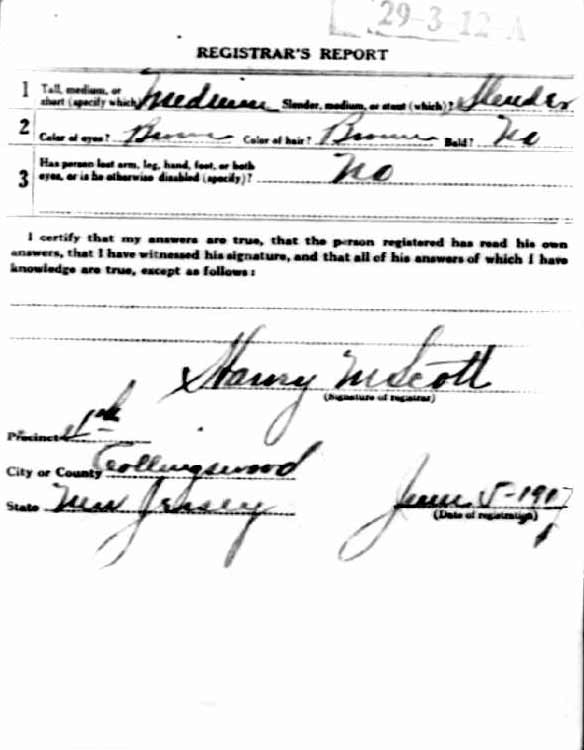 29-3-12-A
REGISTRAR'S REPORT
1 Tall, medium, or short (specify which) Medium Slender, medium, or stout (which)? Slender
2 Color of eyes? Brown Color of hair? Brown Bald? No
3 Has person lost arm, leg, hand, foot, or both eyes, or is he otherwise disabled (specify)? No
I certify that my answers are true, that the person registered has read his own
answers, that I have witnessed his signature, and that all of his answers of which I have
knowledge are true, except as follows:
Harry M Scott
(Signature of registrar)
Precinct
City or County Collingswood
State New Jersey June 5-1917
(Date of registration)